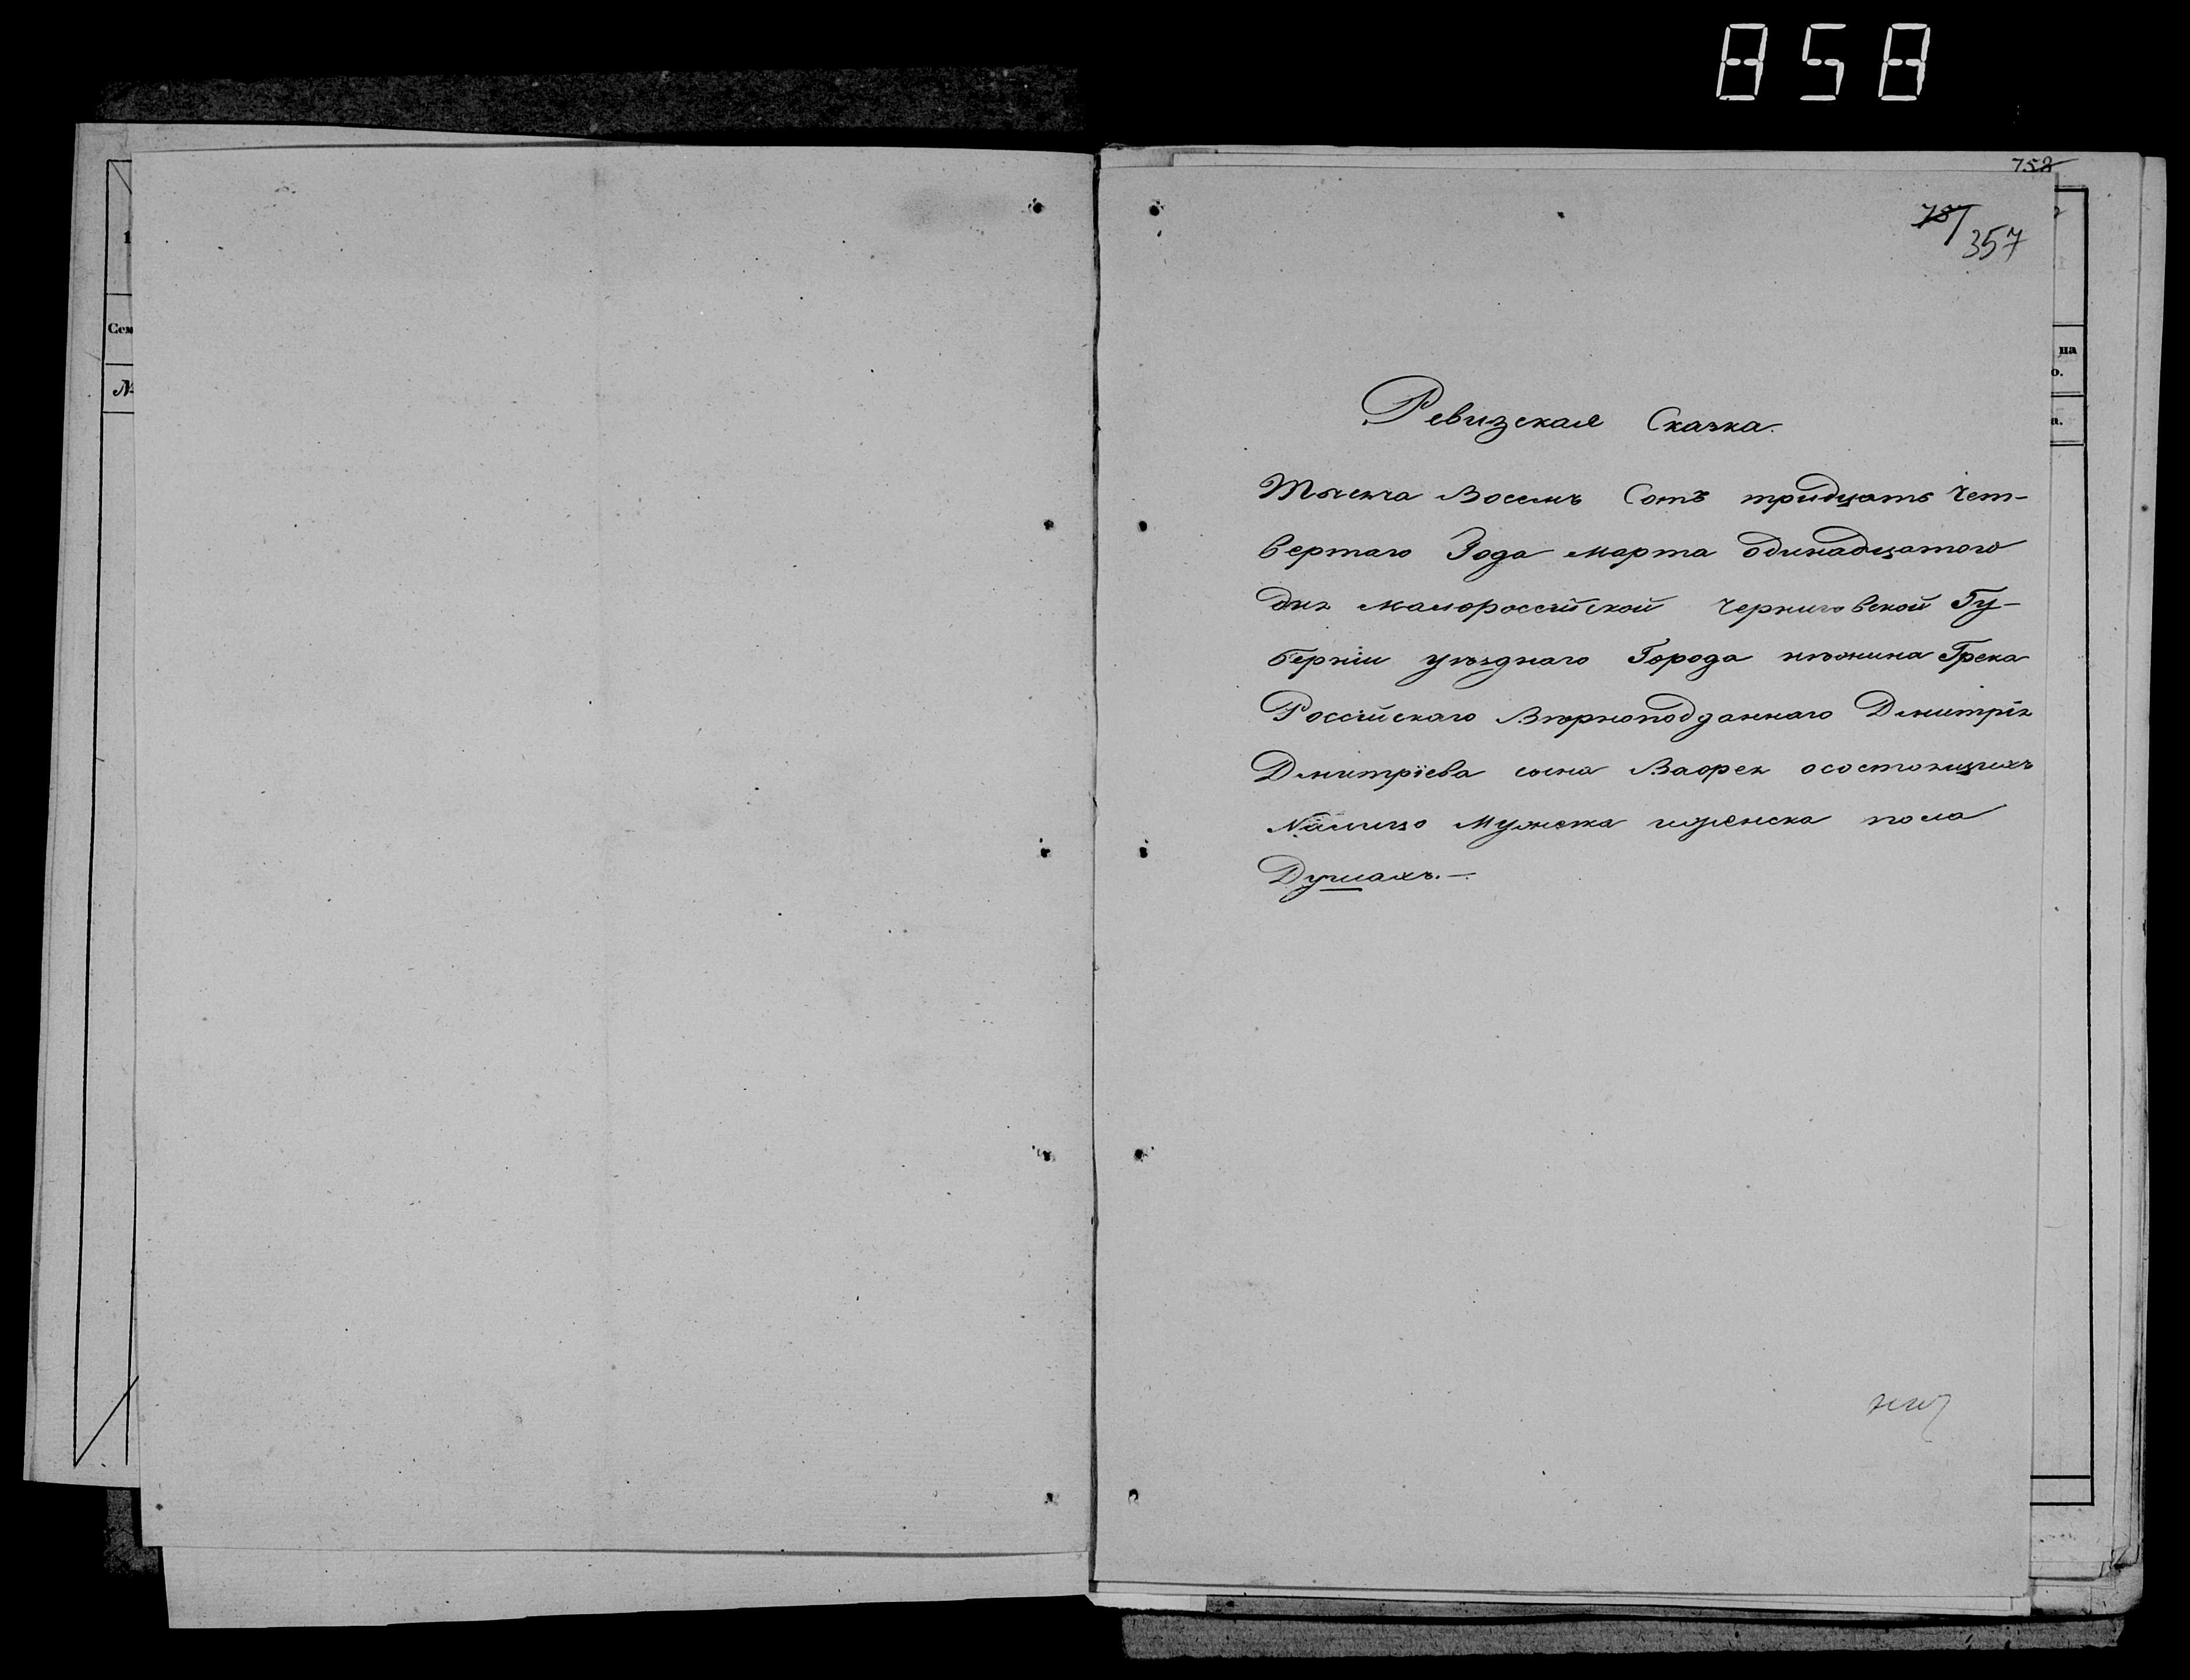 858
758
757
357
1
Сем
№
на
о.
а.
Ревизская Сказка.
Тысяча Восемь Сотъ тридцать Чет-
вертаго Года марта одинадцатого
дня малороссійской Черниговской Гу-
берніи уѣзднаго Города нѣжина Грека
Россійскаго Вѣрноподданнаго Дмитрія
Дмитріева сына осостоящихъ
Налицо Мужеска иженска пола
Душахъ.—